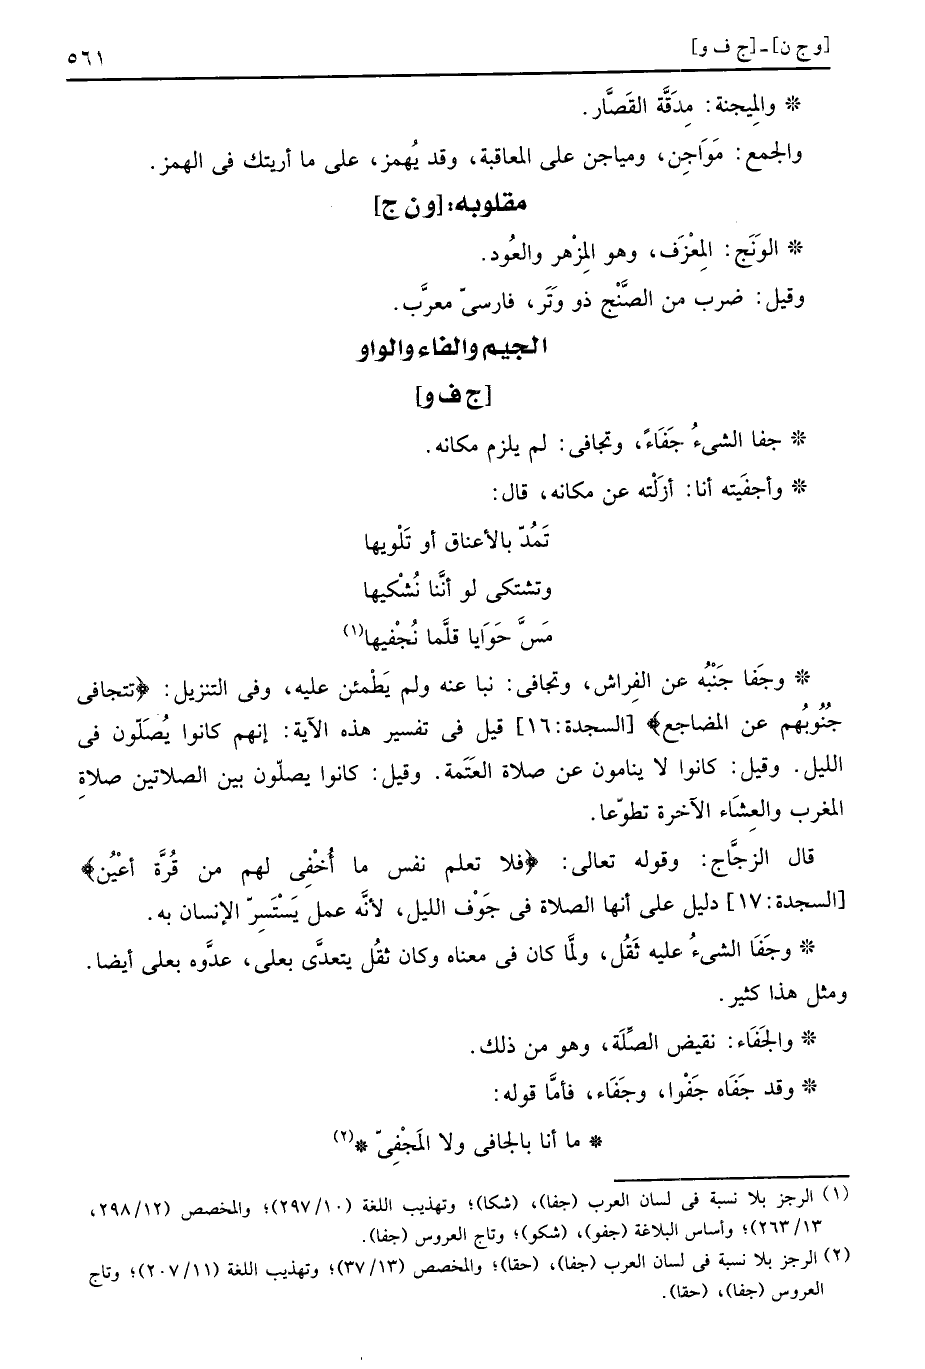 [و ج ن] ـ [ج ف و]
٥٦١
* والمِيجنة: مِدَقَّة القَصَّار.
والجمع: مَوَاجِن، ومياجن على المعاقبة، وقد يُهمز، على ما أريتك فى الهمز.
مقلوبه: [و ن ج]
* الوَنَج: المِعْزَف، وهو المِزْهر والعُود.
وقيل: ضرب من الصَّنْج ذو وَتَر، فارسىّ معرَّب.
الجيم والفاء والواو
[ج ف و]
* جفا الشىءُ جَفَاءً، وتجافى: لم يلزم مكانه.
* وأجفَيته أنا: أزَلْته عن مكانه، قال:
تَمُدّ بالأعناق أو تَلْوِيها
وتشتكى لو أنَّنا نُشْكيها
مَسَّ حَوَايا قلَّما نُجْفيها(١)
* وجَفا جَنْبُه عن الفِراش، وتجافى: نبا عنه ولم يَطْمئن عليه، وفى التنزيل: ﴿تتجافى
جُنُوبُهم عن المضاجع﴾ [السجدة: ١٦] قيل فى تفسير هذه الآية: إنهم كانوا يُصَلّون فى
الليل. وقيل: كانوا لا ينامون عن صلاة العَتَمة. وقيل: كانوا يصلّون بين الصلاتين صلاةِ
المغرب والعِشَاء الآخرة تطوّعا.
قال الزجَّاج: وقوله تعالى: ﴿فلا تعلم نفس ما أُخْفِى لهم من قُرَّة أعْيُن﴾
[السجدة: ١٧] دليل على أنها الصلاة فى جَوْف الليل، لأنَّه عمل يَسْتَسِرّ الإنسان به.
* وجَفَا الشىءُ عليه ثَقُل، ولمَّا كان فى معناه وكان ثقُل يتعدَّى بعلى، عدَّوه بعلى أيضا.
ومثل هذا كثير.
* والجَفَاء: نقيض الصِّلَة، وهو من ذلك.
* وقد جَفَاه جَفْوا، وجَفَاء، فأمَّا قوله:
* ما أنا بالجافى ولا المَجْفِىّ *(٢)
(١) الرجز بلا نسبة فى لسان العرب (جفا)، (شكا)؛ وتهذيب اللغة (٢٩٧/١٠)؛ والمخصص (٢٩٨/١٢،
٢٦٣/١٣)؛ وأساس البلاغة (جفو)، (شكو)؛ وتاج العروس (جفا).
(٢) الرجز بلا نسبة فى لسان العرب (جفا)، (حقا)؛ والمخصص (٣٧/١٣)؛ وتهذيب اللغة (٢٠٧/١١)؛ وتاج
العروس (جفا)، (حقا).